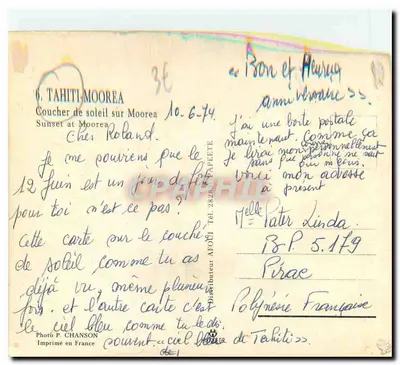 6. TAHITI-MOOREA
Coucher de soleil sur Moorea
Sunset at Moorea
3€
10-6-74
Cher Roland.
Je me souviens que le
12 Juin est un jour de fête
pour toi n'est ce pas?
Cette carte sur le couché
de soleil comme tu as
déjà vu, même plusieurs
fois. et l'autre carte c'est
le ciel bleu comme tu le dis
souvent. "ciel bleu de Tahiti"
Photo P. CHANSON
Imprimé en France
"Bon et Heureux
anniversaire".
j'ai une boîte postale
maintenant. Comme ça
Je
sans que personne ne
voici mon adresse
à present
Melle Pater Linda
B.P 5.179
Pirae
Polynésie Française